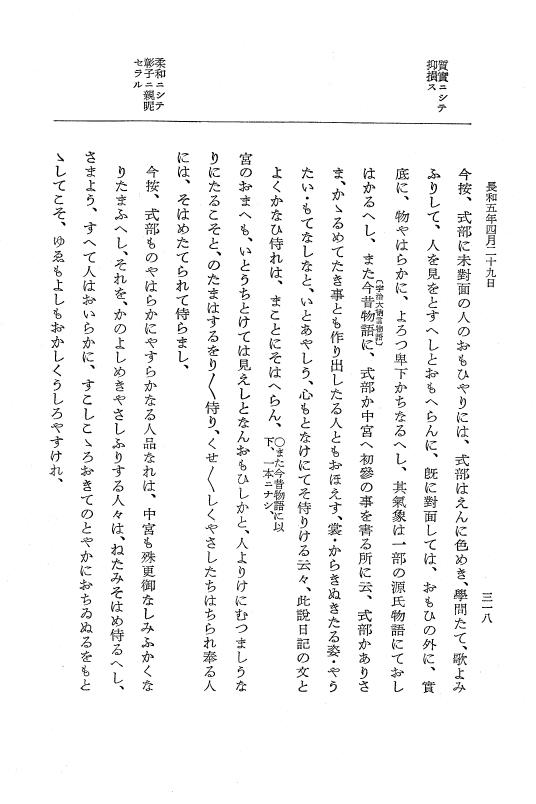 長和五年四月二十九日
三一八
質實ニシテ
抑損ス
今按、式部に未對面の人のおもひやりには、式部はえんに色めき、學問たて、歌よみ
ふりして、人を見をとすへしとおもへらんに、旣に對面しては、おもひの外に、實
底に、物やはらかに、よろつ卑下かちなるへし、其氣象は一部の源氏物語にておし
はかるへし、また今昔物語に、式部か中宮へ初參の事を書る所に云、式部かありさ
〔宇治大納言物語〕
ま、かゝるめてたき事とも作り出したる人ともおほえす、裳・からきぬきたる姿・やう
たい・もてなしなと、いとあやしう、心もとなけにてそ侍りける云々、此說日記の文と
よくかなひ侍れは、まことにそはへらん、
〇また今昔物語に以
下、一本ニナシ、
宮のおまへも、いとうちとけては見えしとなんおもひしかと、人よりけにむつましうな
りにたるこそと、のたまはするをり〳〵侍り、くせ〳〵しくやさしたちはちられ奉る人
には、そはめたてられて侍らまし、
柔和ニシテ
彰子ニ親昵
セラル
今按、式部ものやはらかにやすらかなる人品なれは、中宮も殊更御なしみふかくな
りたまふへし、それを、かのよしめきやさしふりする人々は、ねたみそはめ侍るへし、
さまよう、すへて人はおいらかに、すこしこゝろおきてのとやかにおちゐぬるをもと
ゝしてこそ、ゆゑもよしもおかしくうしろやすけれ、